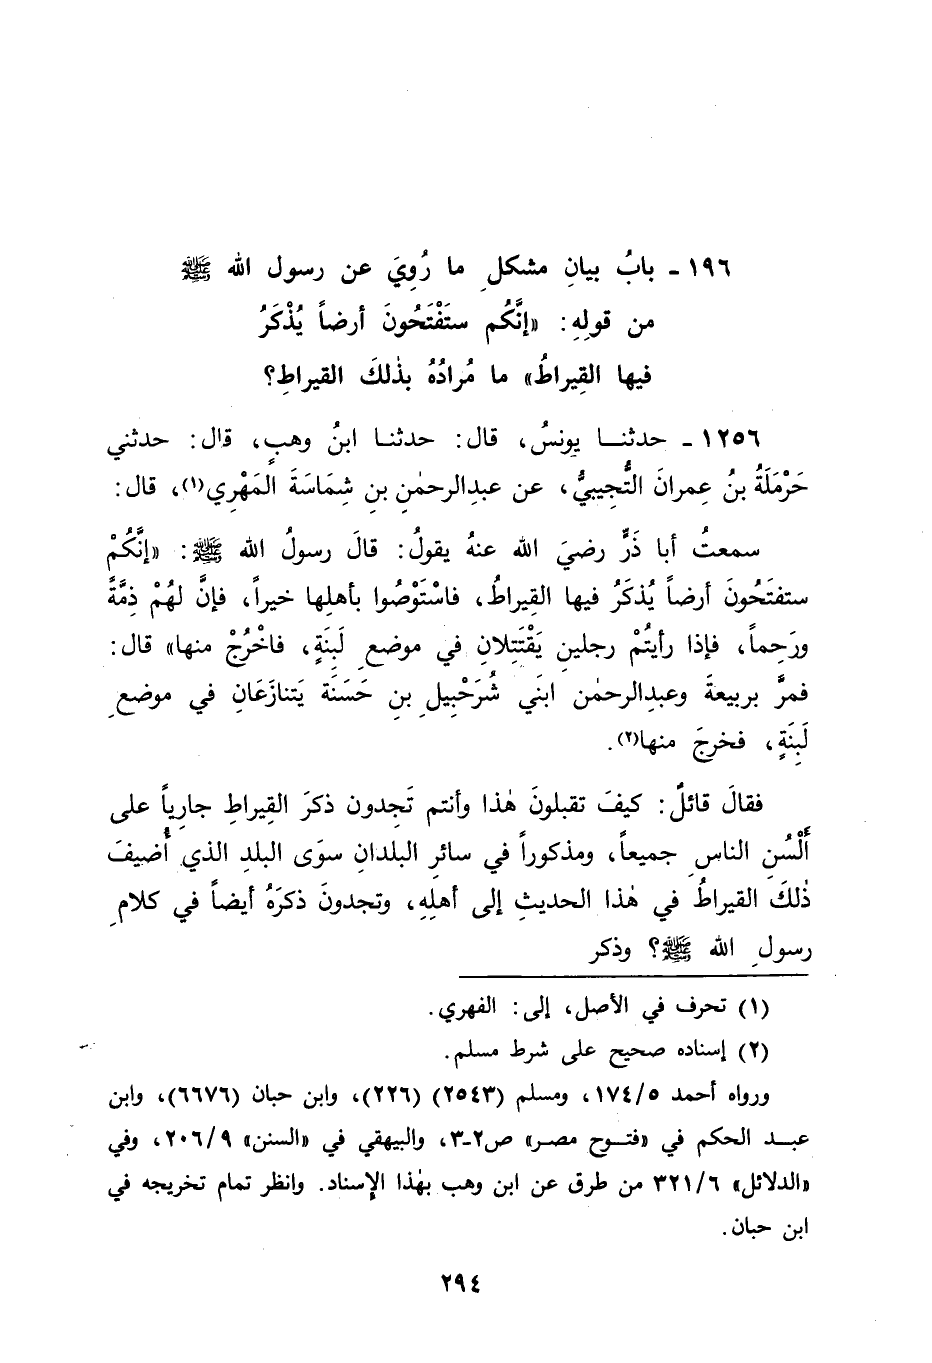 ١٩٦ - بابُ بيانِ مشكلِ ما رُوِيَ عن رسول الله ﷺ
من قولِهِ: «إنَّكُم ستَفْتَحُونَ أرضاً يُذْكَرُ
فيها القِيراطُ» ما مُرادُهُ بذٰلكَ القيراطِ؟
١٢٥٦ - حدثنــا يونسُ، قال: حدثنـا ابنُ وهبٍ، قال: حدثني
حَرْمَلَةُ بنُ عِمرانَ التُّجِيبيُّ، عن عبدالرحمٰنِ بنِ شِمَاسَةَ المَهْرِي(١)، قال:
سمعتُ أبا ذَرٍّ رضيَ الله عنهُ يقولُ: قالَ رسولُ الله ﷺ: «إنَّكُمْ
ستفتَحُونَ أرضاً يُذكَرُ فيها القِيراطُ، فاسْتَوْصُوا بأهلِها خيراً، فإنَّ لهُمْ ذِمَّةً
ورَحِماً، فإذا رأيتُمْ رجلينِ يَقْتَتِلانِ في موضعِ لَبِنَةٍ، فاخْرُجْ منها» قال:
فمرَّ بربيعةَ وعبدِالرحمٰن ابنَي شُرَحْبِيلِ بنِ حَسَنَة يَتنازَعَانِ في موضعِ
لَبِنَةٍ، فخرجَ منها(٢).
فقالَ قائلٌ: كيفَ تقبلونَ هٰذا وأنتم تَجِدون ذكرَ القِيراطِ جارِياً على
أَلْسُنِ الناسِ جميعاً، ومذكوراً في سائرِ البلدانِ سوَى البلدِ الذي أُضيفَ
ذٰلكَ القيراطُ في هٰذا الحديثِ إلى أهلِهِ، وتجدونَ ذكرَهُ أيضاً في كلامِ
رسولِ الله ﷺ؟ وذكر
(١) تحرف في الأصل، إلى: الفهري.
(٢) إسناده صحيح على شرط مسلم.
ورواه أحمد ١٧٤/٥، ومسلم (٢٥٤٣) (٢٢٦)، وابن حبان (٦٦٧٦)، وابن
عبـد الحكم في «فتـوح مصـر» ص٢-٣، والبيهقي في «السنن» ٢٠٦/٩، وفي
«الدلائل» ٣٢١/٦ من طرق عن ابن وهب بهٰذا الإسناد. وانظر تمام تخريجه في
ابن حبان.
٢٩٤